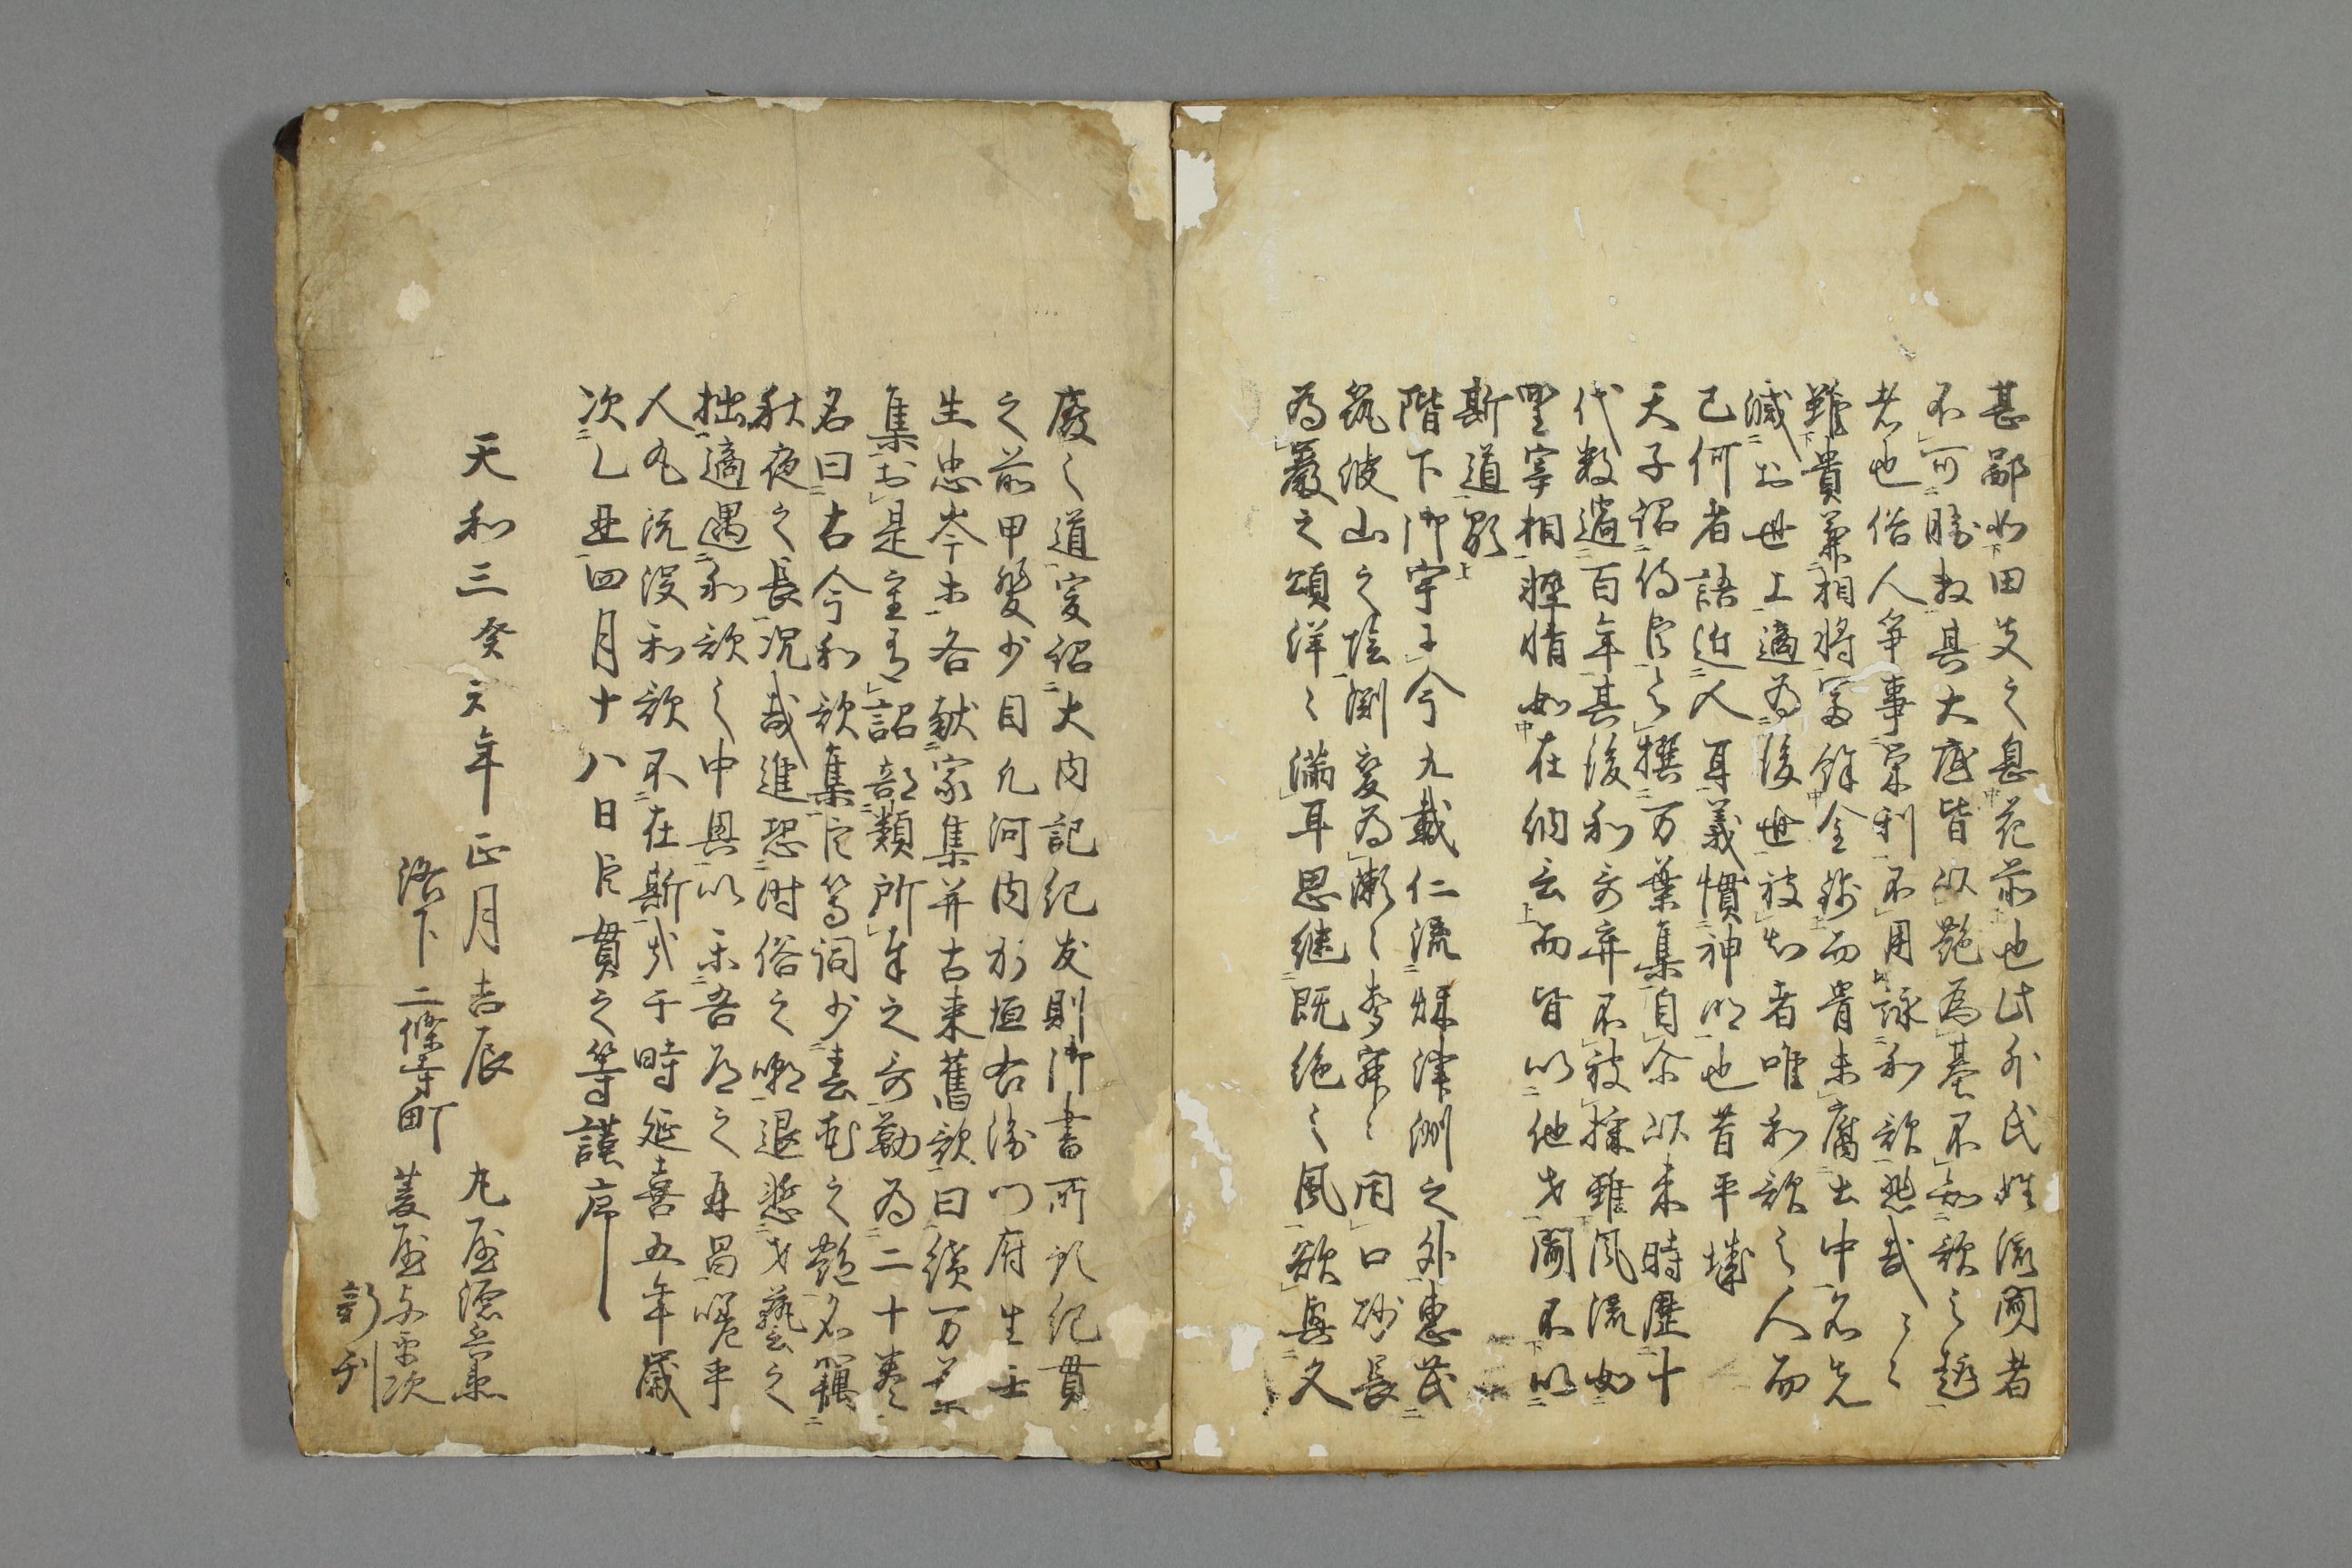 甚鄙如田夫之息花前也此外氏姓流聞者
不可勝数其大底皆以艶為基不知歌之趣
者也俗人争事栄利不用詠和歌悲哉〻〻
雖貴兼相将富餘金銭而骨未腐土中名先
滅於世上適為後世被知者唯和歌之人而
已何者語近人耳義慣神明也昔平城
天子詔侍臣令撰万葉集自尓以来時歴十
代数過百年其後和哥弃不被採雖風流如
野宰相軽情如在納言而皆以他才聞不以
斯道顕
階下御宇于今九載仁流秋津洲之外恵茂
筑波山之陰淵変為瀬之声寂〻閇口砂長
為巌之頌洋〻満耳思継既絶之風欲興久
廃之道爰詔大内記紀友則御書所預紀貫
之前甲斐少目凡河内躬恒右衛門府生壬
生忠岑等各献家集并古来舊歌曰續万葉
集於是重有詔部類所奉之哥勒為二十巻
名曰古今和歌集臣等詞少春花之艶名竊
秋夜之長况哉進恐時俗之嘲退慙才藝之
拙適遇和歌之中興以楽吾道之再昌嗟乎
人丸既没和歌不在斯哉于時延喜五年歳
次乙丑四月十八日臣貫之等謹序
天和三癸亥年正月吉辰 丸屋源兵衛
洛下二條寺町 菱屋与平次
新刊